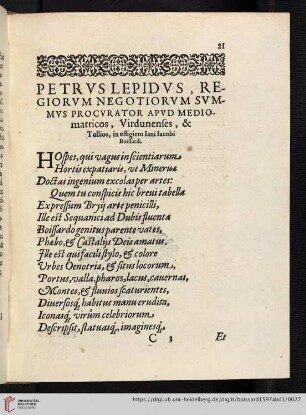 21
PETRVS LEPIDVS, RE-
GIORVM NEGOTIORVM SVM-
MVS PROCVRATOR APVD MEDIO-
matricos, Virdunenses, &
Tullios, in effigiem Iani Iacobi
Boissardi.
HOspes, qui vagus in scientiarum
Hortis expatiaris, vt Mineruæ
Doctas ingenium excolas per artes:
Quem tu conspicis hic breui tabella
Expressum Bryij arte penicilli,
Ille est Sequanici ad Dubis fluenta
Boissardo genitus parente vates,
Phœbo, & Castalijs Deis amatus,
Ille est qui facili stylo, & colore
Vrbes Oenotrias, & situs locorum,
Portus, valla, pharos, lacus, cauernas,
Montes, & fluuios scaturientes,
Diuersosq; habitus manu erudita,
Iconasq; virûm celebriorum
Descripsit, statuasq;, imaginesq;
C 3 Et
https://digi.ub.uni-heidelberg.de/diglit/boissard1597abd1/0027